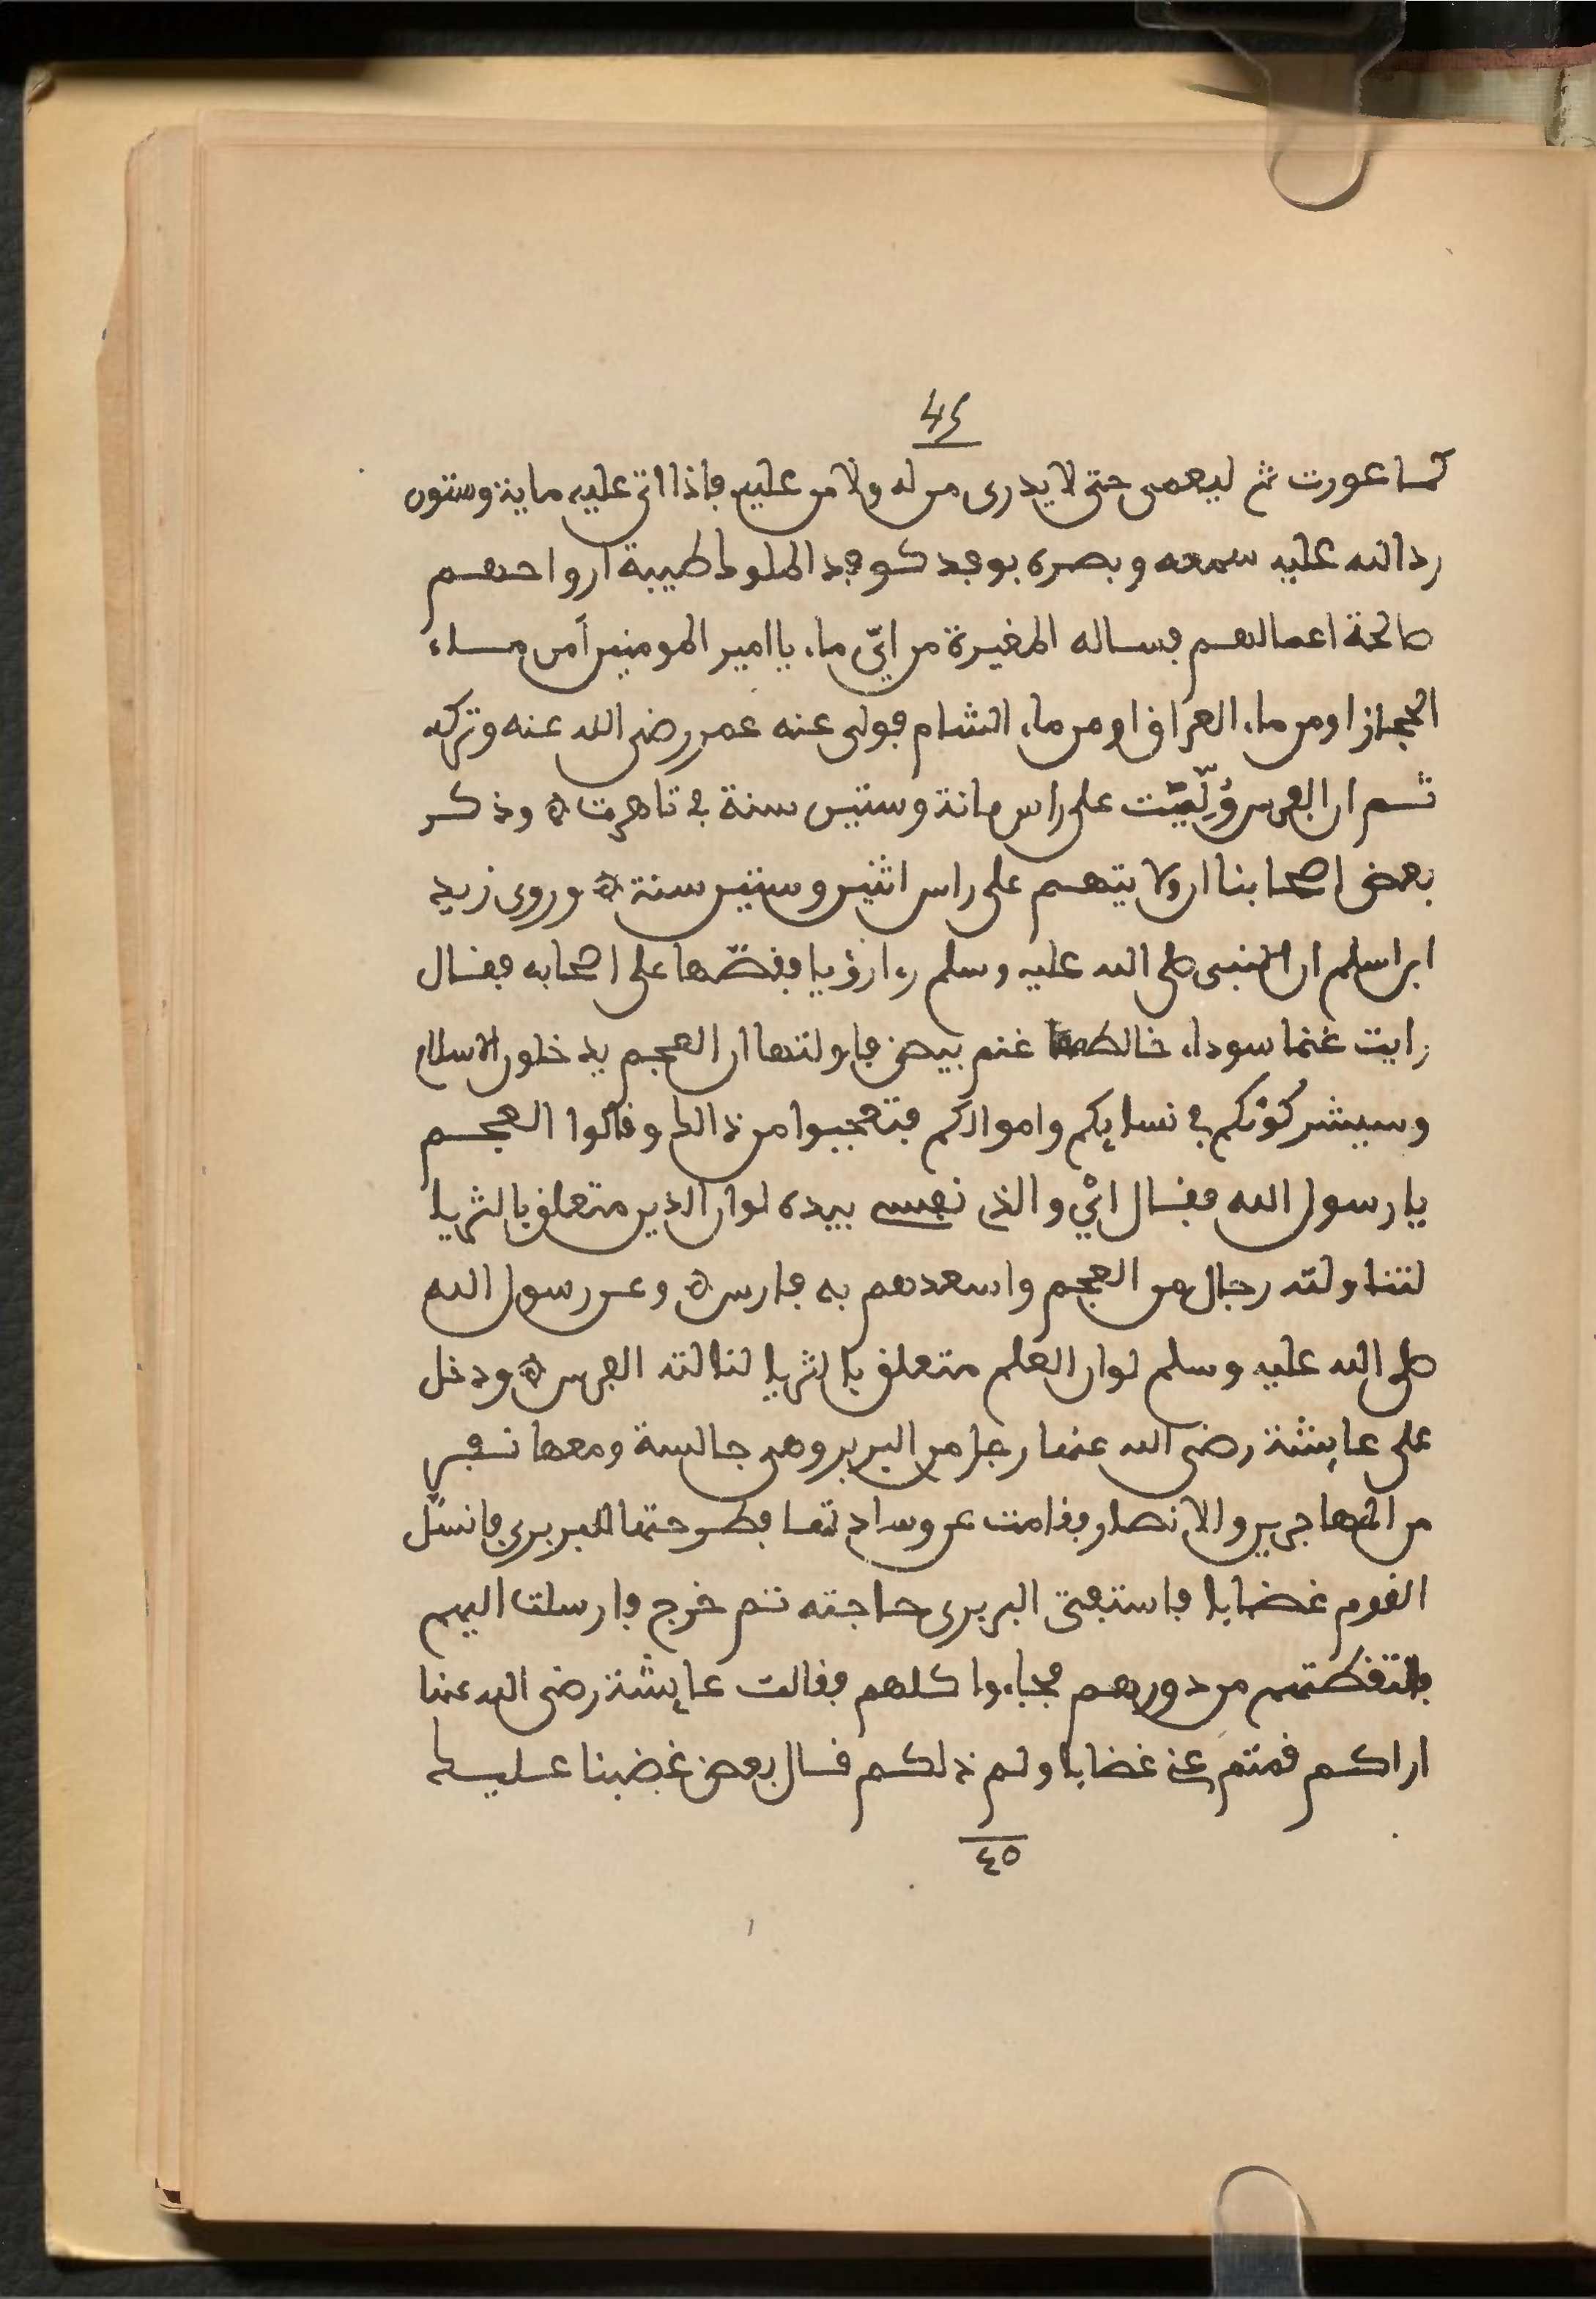 45
كما عورت ثم ليعمى حتى لا يدرى من له ولا من عليه فاذا اتى عليه ماية وستون
رد الله عليه سمعه وبصره بوفد كوفد الملوك طيبة ارواحهم
صالحة اعمالهم فساله المغيرة من ايّ ماء يا امير المومنين أمن مساء
الحجاز او من ماء العراق او من ماء الشام فولى عنه عمر رضى الله عنه وتركه
ثم ان الفرس وُلِّيَت على راس مائة وستين سنة في تاهرت ۞ وذكر
بعض اصحابنا ان ولايتهم على راس اثنين وستين سنة ۞ وروى زيد
ابن اسلم ان النبى صلى الله عليه وسلم رءا رؤيا فقصّها على اصحابه فقال
رايت غنما سوداء خالطها غنم بيض فاولتها ان العجم يدخلون الاسلام
وسيشركُونكم في نسايكم واموالكم فتعجبوا من ذالك وقالوا العجم
يا رسول الله فقال ائْ والذى نفسى بيده لو ان الدين متعلق بالثريا
لتناولته رجال من العجم واسعدهم به فارس ۞ وعن رسول الله
صلى الله عليه وسلم لو ان العلم متعلق بالثريا لنالته الفرس ۞ ودخل
على عايشة رضى الله عنها رجل من البربر وهى جالسة ومعها نفر
من المهاجرين والانصار فقامت عن وسادتها فطرحتها للبربرى فانسلّ
القوم غضابا فاستفتى البربرى حاجته ثم خرج فارسلت اليهم
فالتقطتهم من دورهم فجاءوا كلهم فقالت عايشة رضى الله عنها
اراكم قمتم عنى غضابا ولم ذلكم قال بعض غضبنا عليك
٤٥